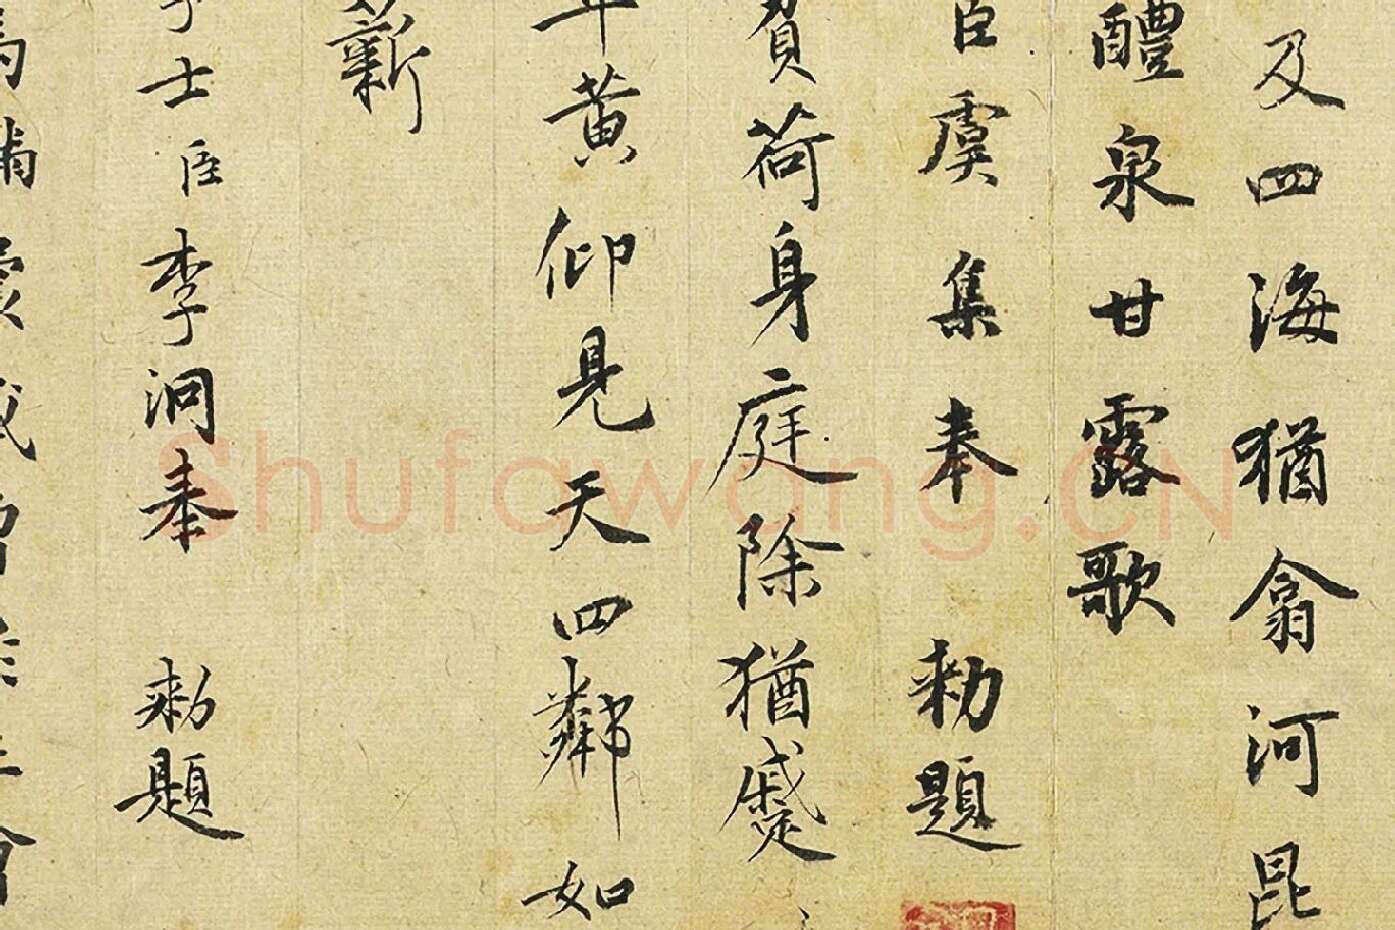 及四海猶翕河昆
醴泉甘露歌
臣虞集奉 勑題
負荷身庭除猶蹙
年黃仰見天四鄰如
薪
學士臣李洞奉 勑題
Shufawang.CN